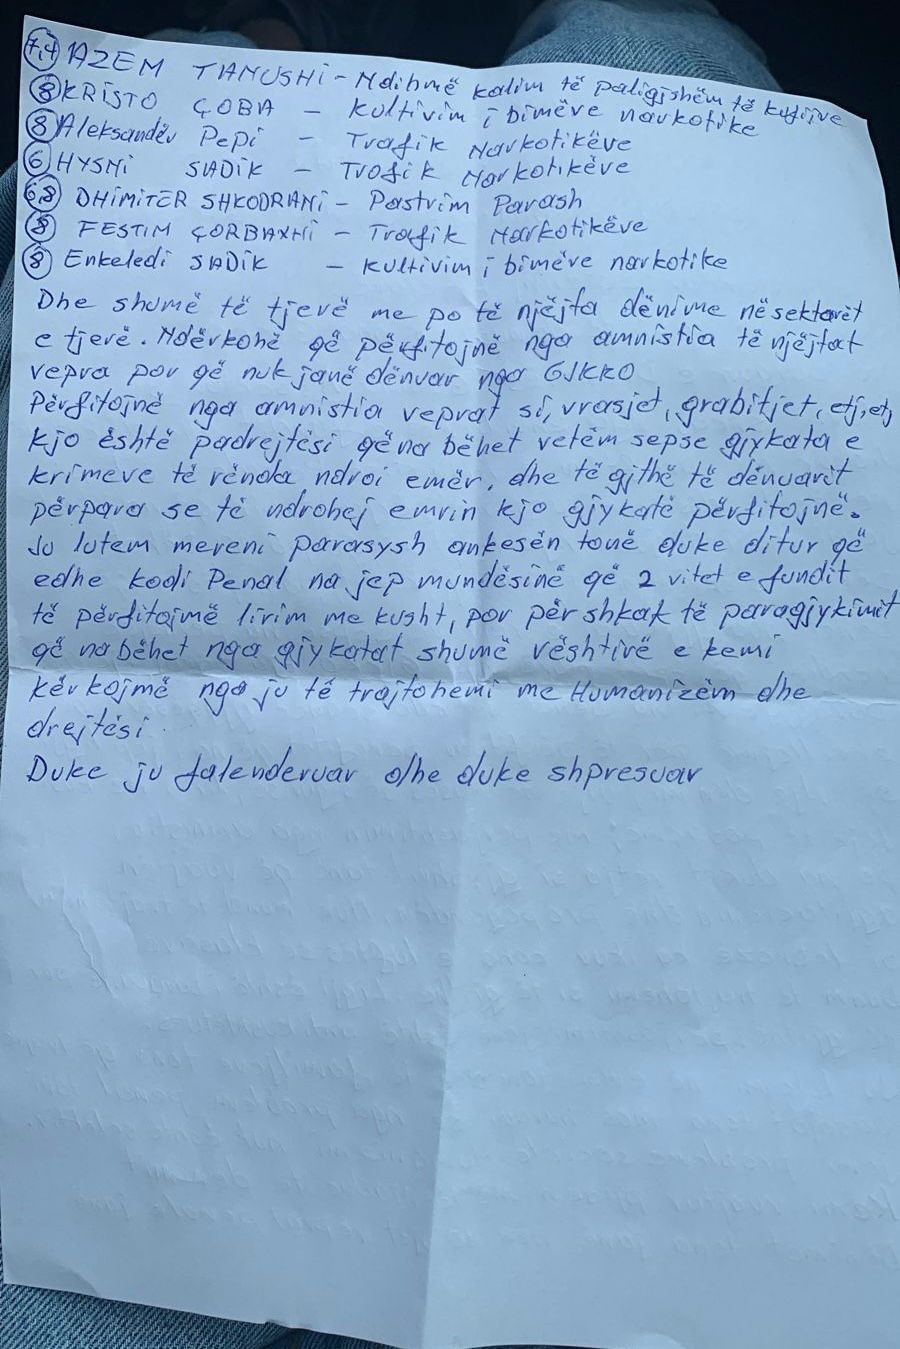 7,4 AZEM TANUSHI - Ndihmë kalim të paligjshëm të kufijve
8 KRISTO ÇOBA - Kultivim i bimëve narkotike
8 Aleksandër Pepi - Trafik Narkotikëve
6 HYSNI SADIK - Trafik Narkotikëve
6,8 DHIMITER SHKODRANI - Pastrim Parash
8 FESTIM ÇORBAXHI - Trafik Narkotikëve
8 Enkeledi SADIK - Kultivim i bimëve narkotike
Dhe shumë të tjerë me po të njëjta dënime në sektorët
e tjerë. Ndërkohë që përfitojnë nga amnistia të njëjtat
vepra por që nuk janë dënuar nga GJKRO
Përfitojnë nga amnistia veprat si, vrasjet, grabitjet, etj, etj
kjo është padrejtësi që na bëhet vetëm sepse gjykata e
krimeve të rënda ndroi emër, dhe të gjithë të dënuarit
përpara se të ndrohej emrin kjo gjykatë përfitojnë.
Ju lutem mereni parasysh ankesën tonë duke ditur që
edhe kodi Penal na jep mundësinë që 2 vitet e fundit
të përfitojmë lirim me kusht, por për shkak të paragjykimit
që na bëhet nga gjykatat shumë vështirë e kemi
kërkojmë nga ju të trajtohemi me Humanizëm dhe
drejtësi.
Duke ju falenderuar dhe duke shpresuar